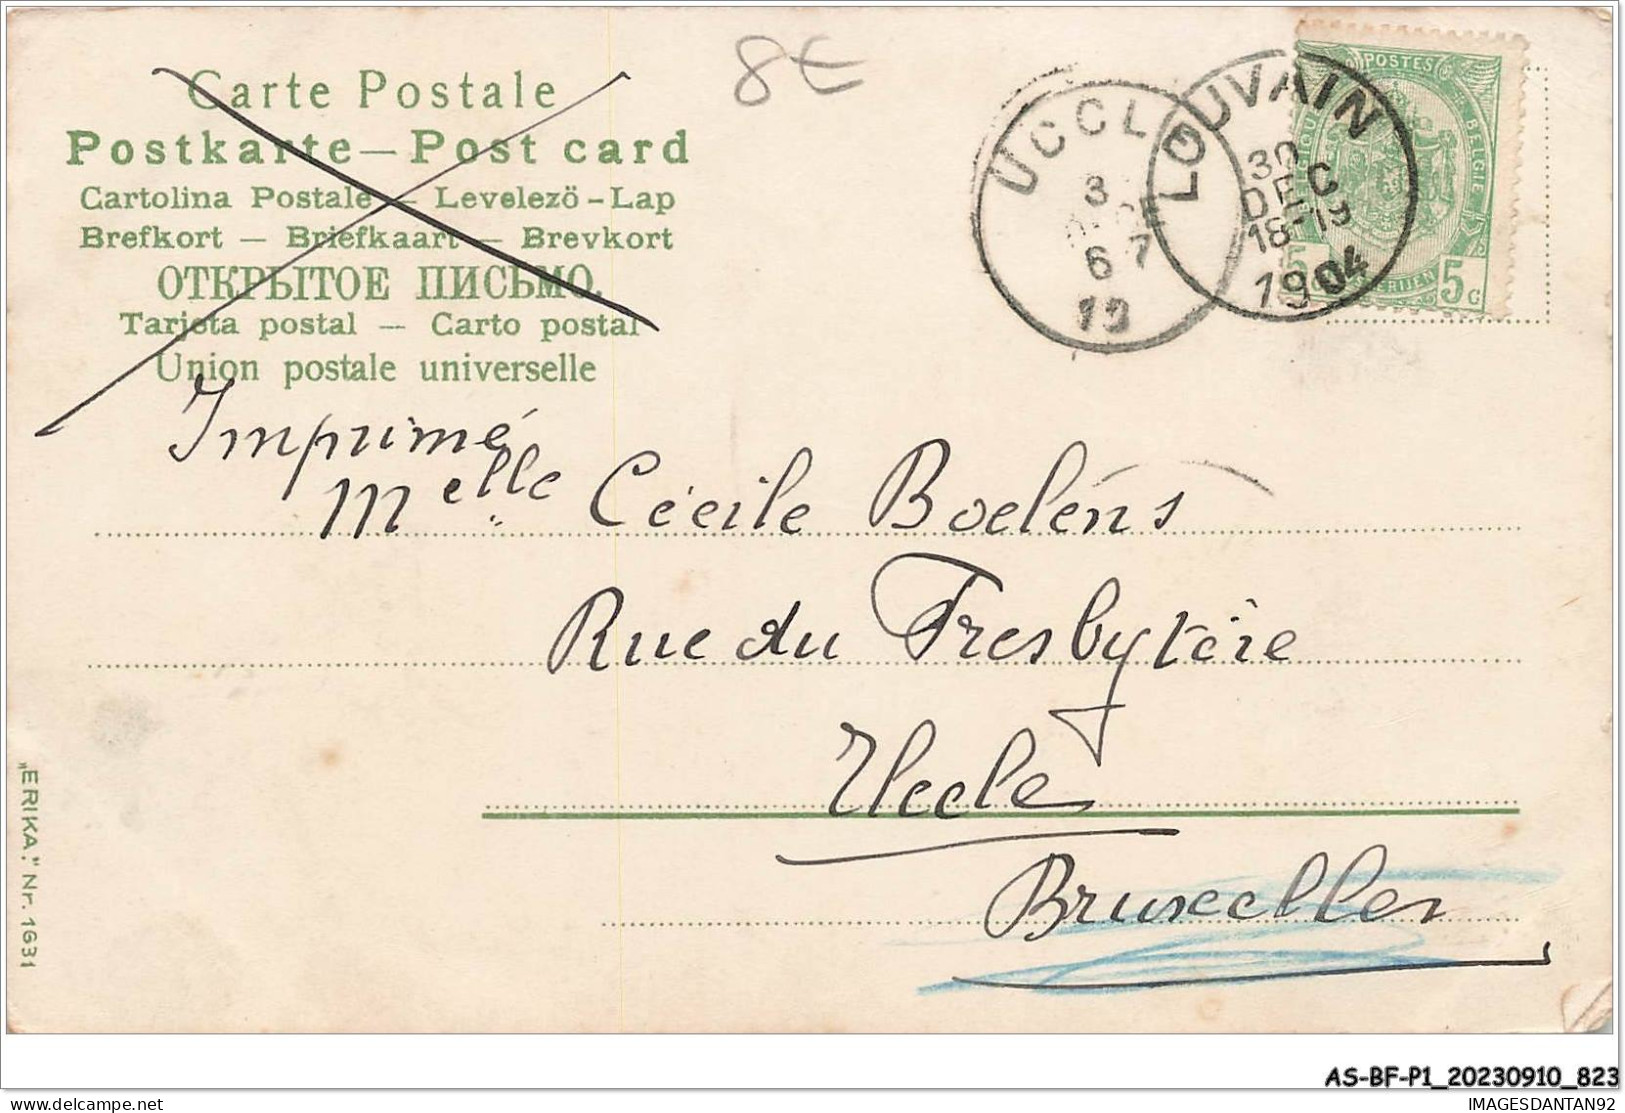 8€
Carte Postale
Postkarte — Post card
Cartolina Postale — Levelezö - Lap
Brefkort — Briefkaart — Brevkort
ОТКРЫТОЕ ПИСЬМО.
Tarjeta postal — Carto postal
Union postale universelle
UCCL
3
6 7
19
LOUVAIN
30
DEC
18-19
1904
POSTES
BELGIE
5 C
Imprimé
Melle Cécile Boelens
Rue du Presbytère
Uccle
Bruxelles
„ERIKA." Nr. 1631
AS-BF-P1_20230910_823
delcampe.net
IMAGESDANTAN92